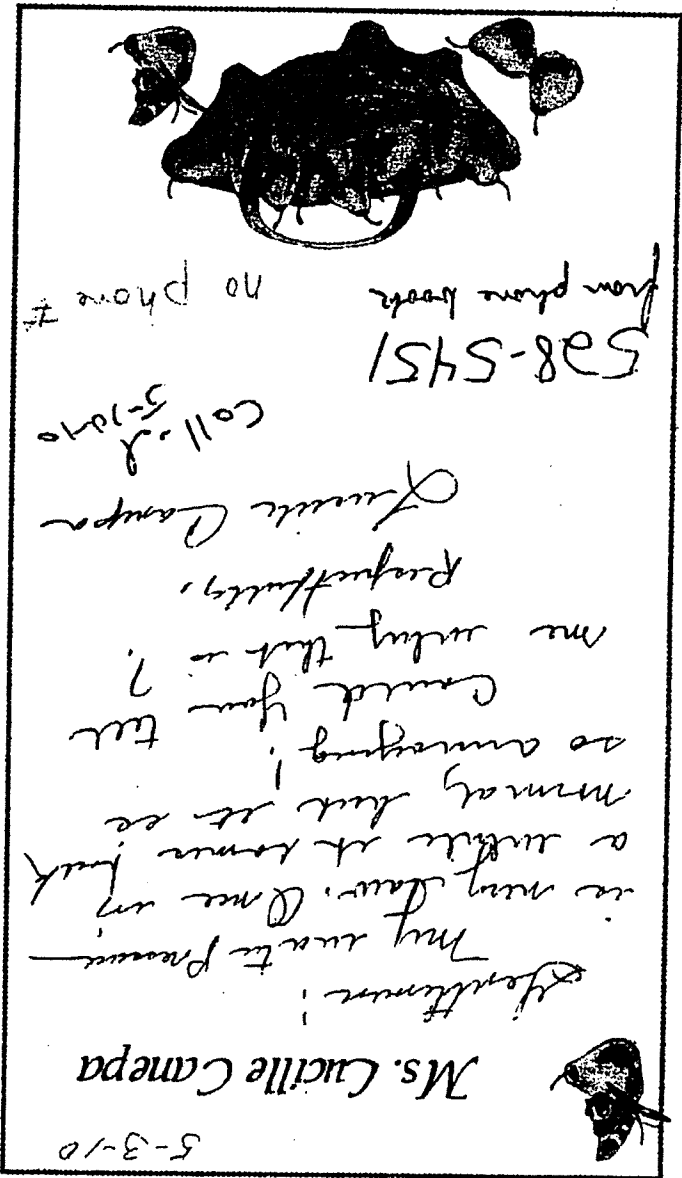 5-3-10
Ms. Lucille Canepa
Gentlemen:
My water Pressure
is very low. Once in
a while it comes back
normal, but it is
so annoying!
Could you tell
me why that is?
Respectfully,
Lucille Canepa
Called
5-10-10
528-5451
from phone book
no phone #